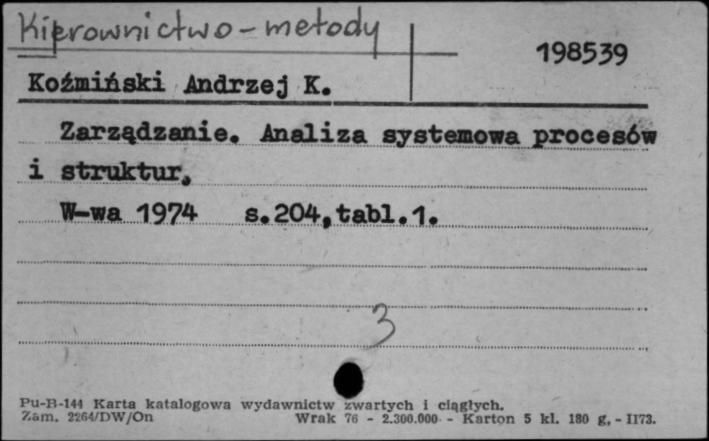 Kierownictwo - metody
198539
Koźmiński Andrzej K.
Zarządzanie. Analiza systemowa procesów
i struktur.
W-wa 1974 s.204,tabl.1.
3
Pu-B-144 Karta katalogowa wydawnictw zwartych i ciągłych.
Zam. 2264/DW/On Wrak 76 - 2.300.000 - Karton 5 kl. 180 g. - II73.